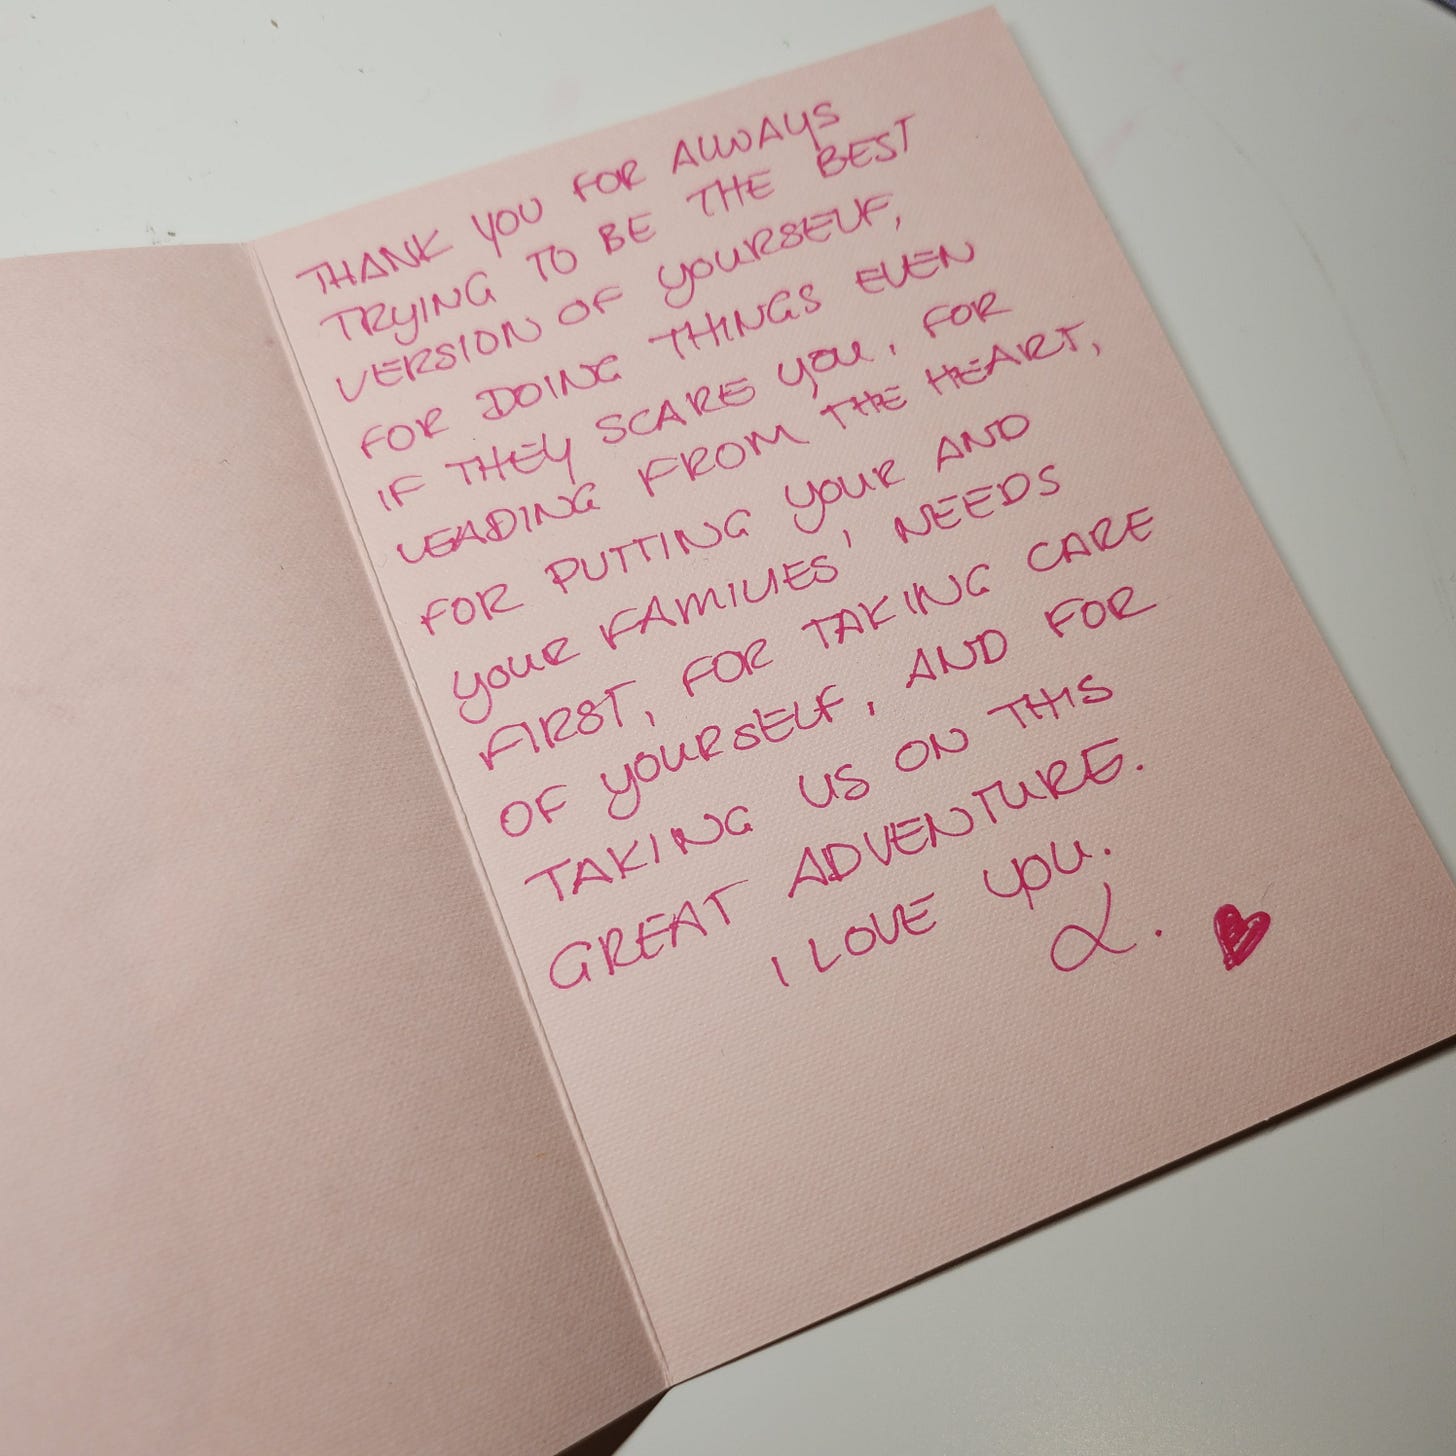 THANK YOU FOR ALWAYS
TRYING TO BE THE BEST
VERSION OF YOURSELF,
FOR DOING THINGS EVEN
IF THEY SCARE YOU, FOR
LEADING FROM THE HEART,
FOR PUTTING YOUR AND
YOUR FAMILIES' NEEDS
FIRST, FOR TAKING CARE
OF YOURSELF, AND FOR
TAKING US ON THIS
GREAT ADVENTURE.
I LOVE YOU.
L.